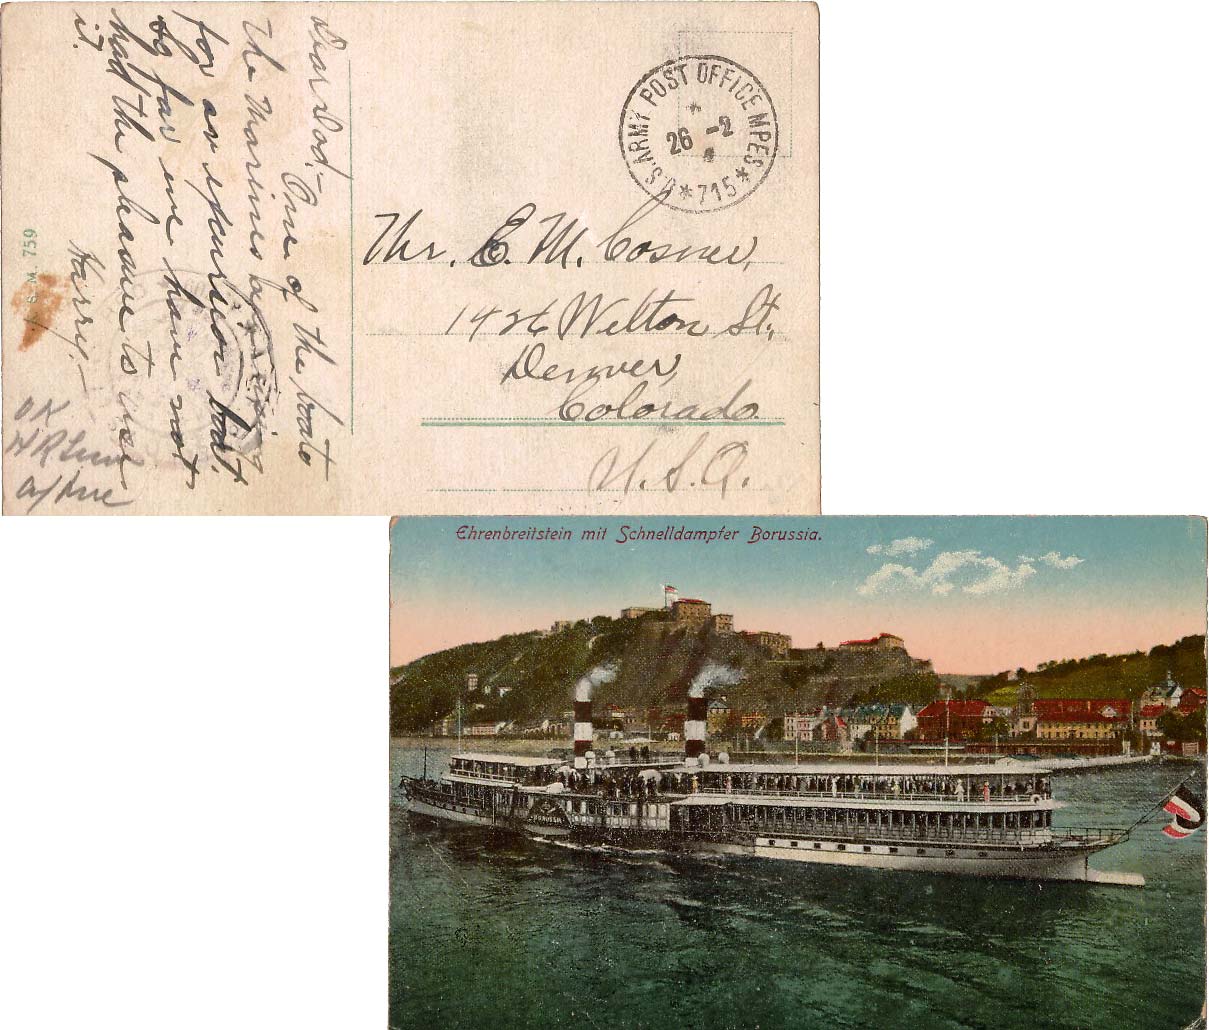 Dear Dad,- One of the boats
the Marines are using
for an excursion boat.
So far we have not
had the pleasure to use
it.
Harry.-
OK
S. M. 759
U.S. ARMY POST OFFICE M.P.E.S.
26 -2
* 715 *
Mr. E. M. Cosner,
1426 Welton St.,
Denver,
Colorado.
U.S.A.
Ehrenbreitstein mit Schnelldampfer Borussia.
BORUSSIA